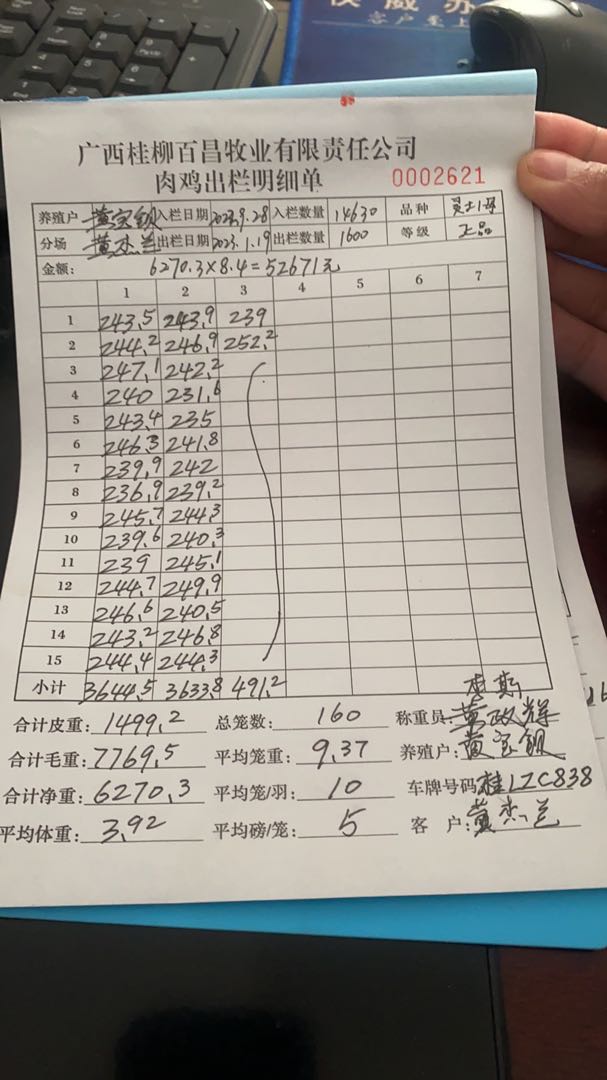 广西桂柳百昌牧业有限责任公司
肉鸡出栏明细单 0002621
养殖户 黄宝钡 入栏日期 2022.9.28 入栏数量 14630 品种
分场 黄杰兰 出栏日期 2023.1.19 出栏数量 1600 等级 正品
金额: 6270.3×8.4=52671元
1 2 3 4 5 6 7
1 243.5 243.9 239
2 244.2 246.9 252.2
3 247.1 242.2
4 240 231.6
5 243.4 235
6 246.3 241.8
7 239.9 242
8 236.9 239.2
9 245.7 244.3
10 239.6 240.3
11 239 245.1
12 244.7 249.9
13 246.6 240.5
14 243.2 246.8
15 244.4 244.3
小计 3644.5 3633.8 491.2
合计皮重: 1499.2 总笼数: 160 称重员: 黄政辉
合计毛重: 7769.5 平均笼重: 9.37 养殖户: 黄宝钡
合计净重: 6270.3 平均笼/羽: 10 车牌号码 桂LZC838
平均体重: 3.92 平均磅/笼: 5 客 户: 黄杰兰